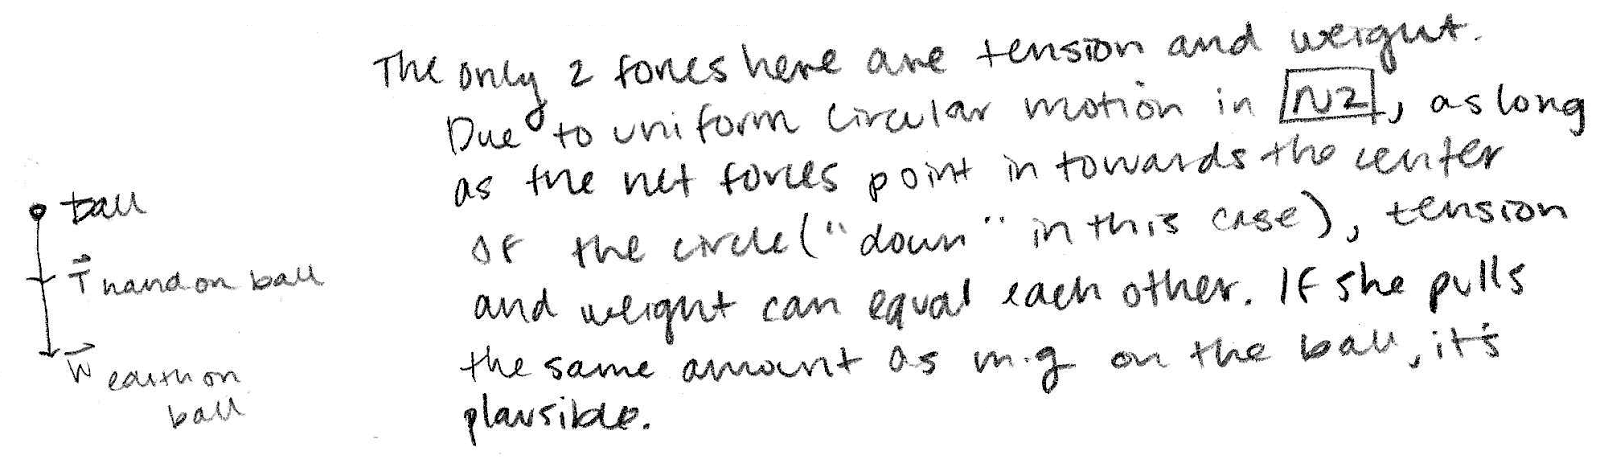 The only 2 forces here are tension and weight.
Due to uniform circular motion in N2, as long
as the net forces point in towards the center
of the circle ("down" in this case), tension
and weight can equal each other. If she pulls
the same amount as m·g on the ball, it's
plausible.
ball
T hand on ball
W earth on
ball